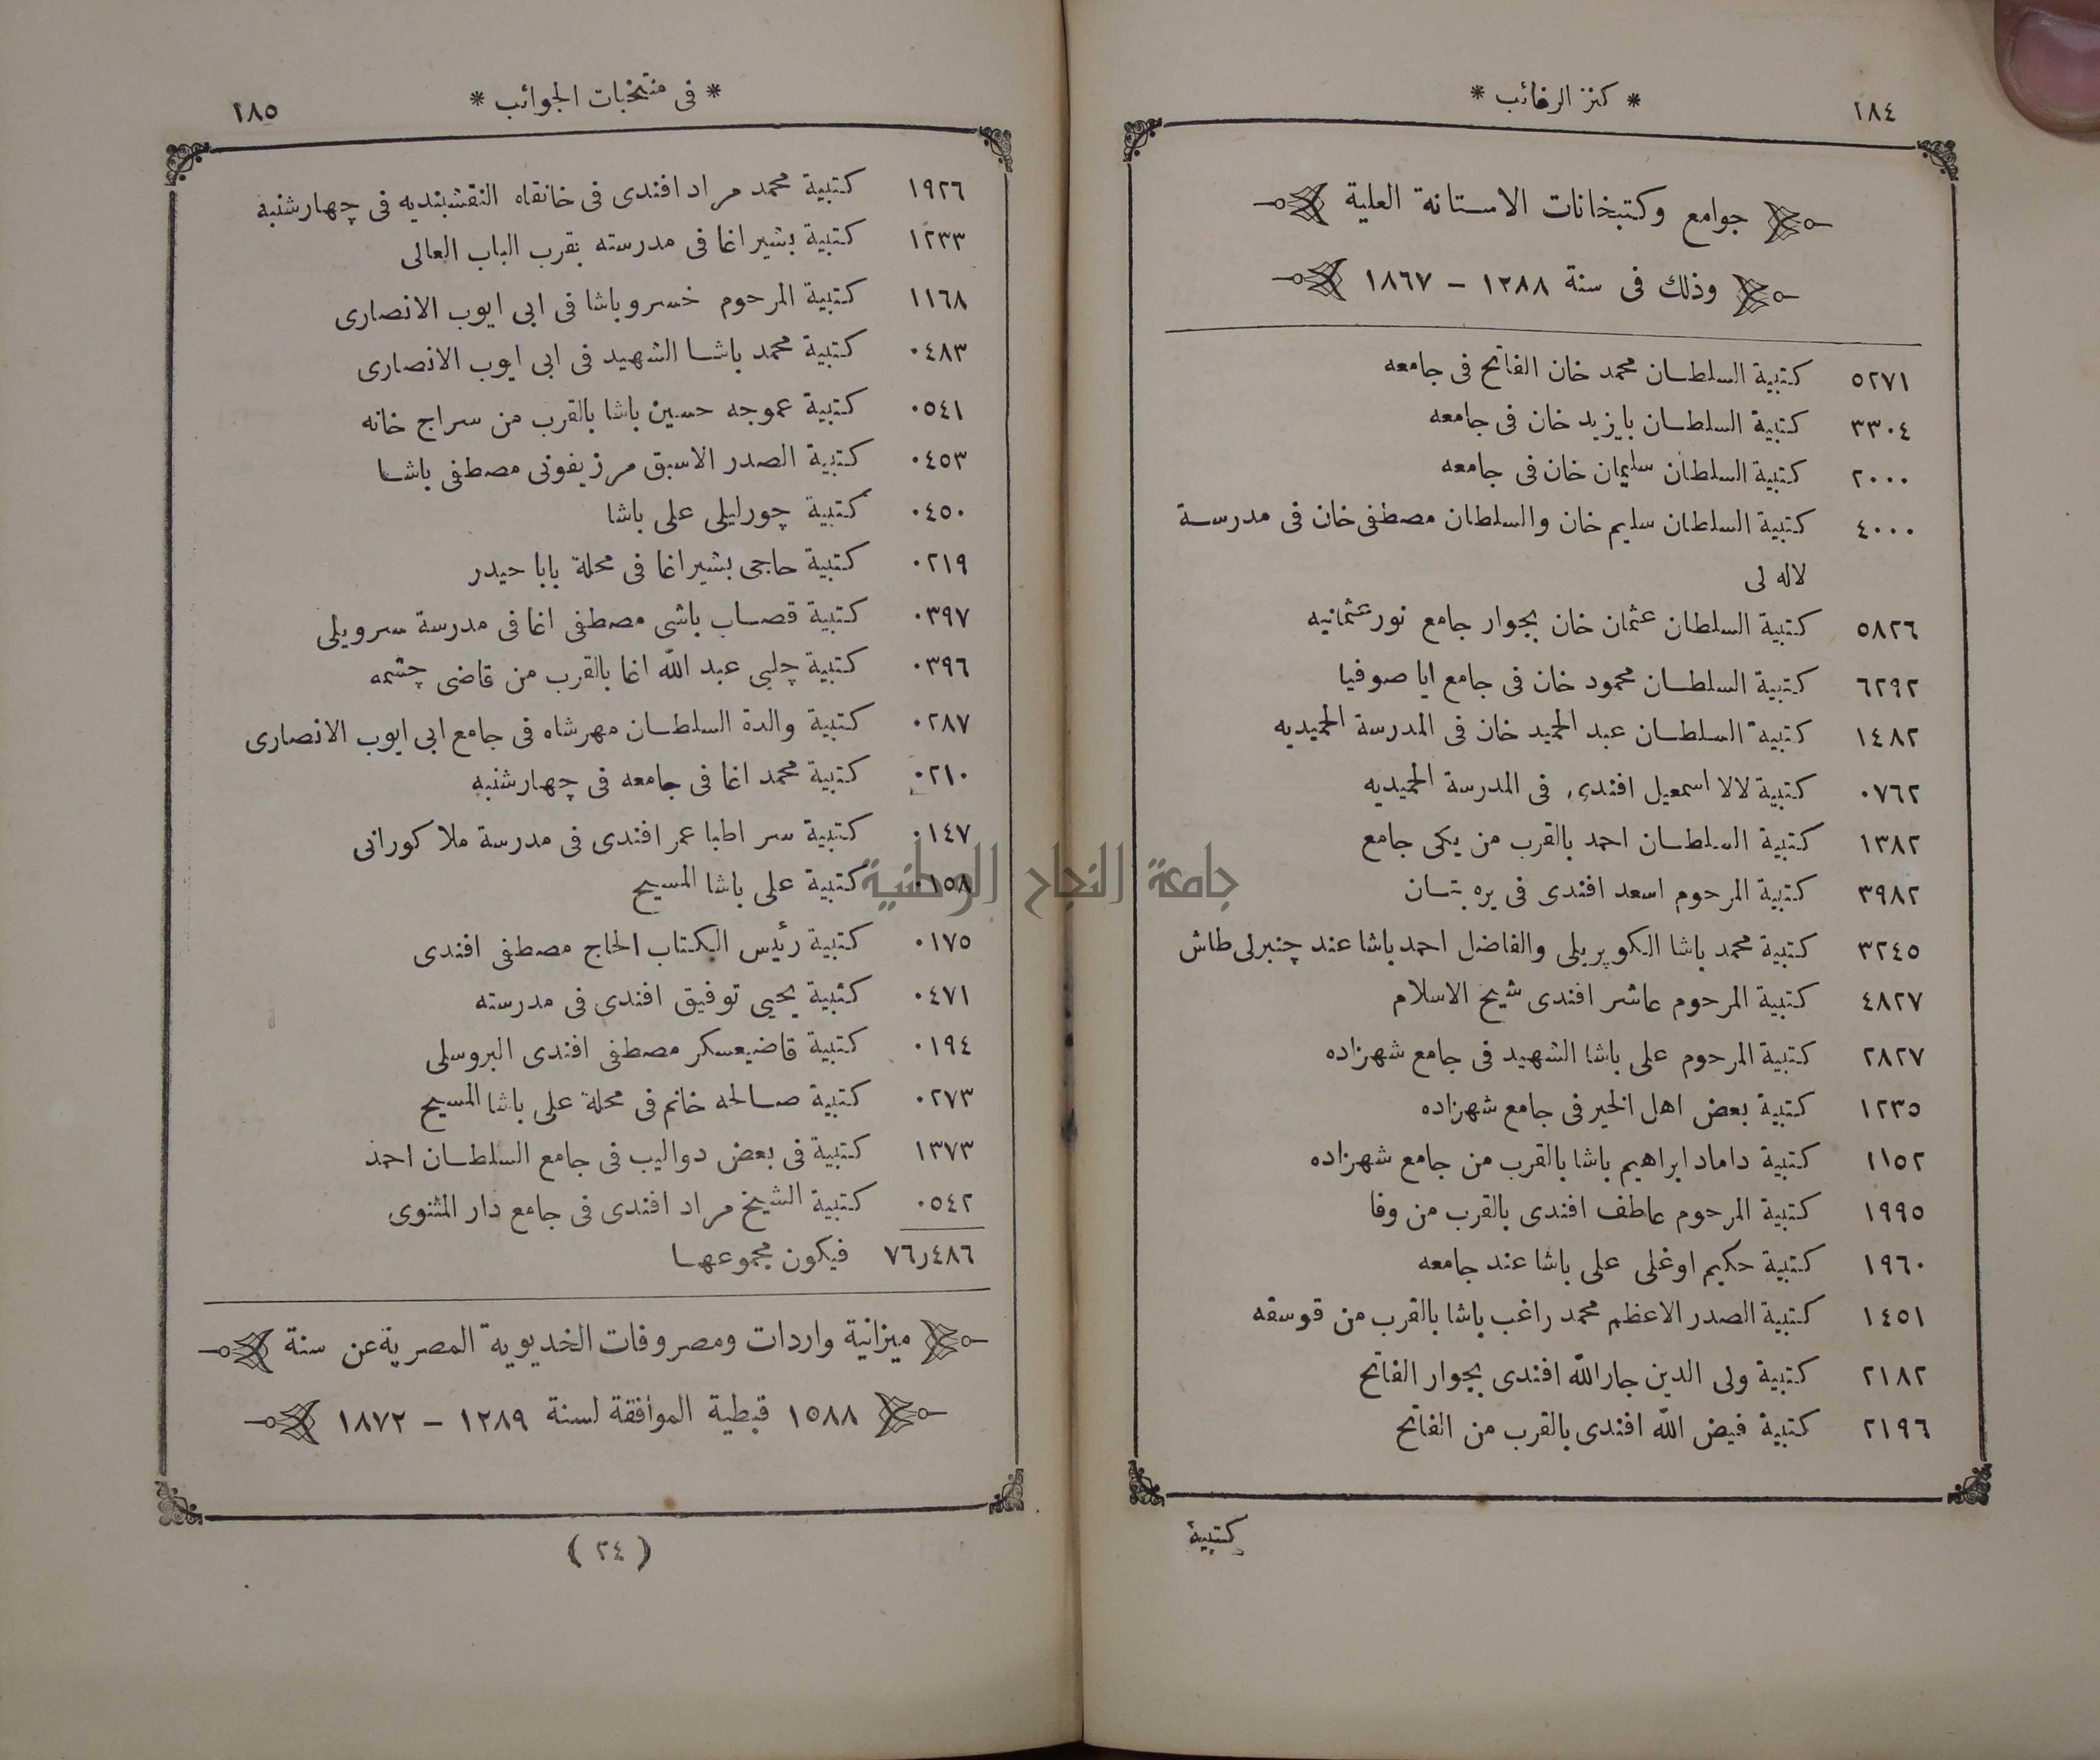 ١٨٤
* كنز الرغائب *
جوامع وكتبخانات الاستانة العلية
وذلك فى سنة ١٢٨٨ – ١٨٦٧
٥٢٧١ كتبية السلطان محمد خان الفاتح فى جامعه
٣٣٠٤ كتبية السلطان بايزيد خان فى جامعه
٢٠٠٠ كتبية السلطان سليمان خان فى جامعه
٤٠٠٠ كتبية السلطان سليم خان والسلطان مصطفى خان فى مدرسة
لاله لى
٥٨٢٦ كتبية السلطان عثمان خان بجوار جامع نور عثمانيه
٦٢٩٢ كتبية السلطان محمود خان فى جامع ايا صوفيا
١٤٨٢ كتبية السلطان عبد الحميد خان فى المدرسة الحميديه
٠٧٦٢ كتبية لالا اسمعيل افندى فى المدرسة الحميديه
١٣٨٢ كتبية السلطان احمد بالقرب من يكى جامع
٣٩٨٢ كتبية المرحوم اسعد افندى فى يره بتسان
٣٢٤٥ كتبية محمد باشا الكوپريلى والفاضل احمد باشا عند چنبرلى طاش
٤٨٢٧ كتبية المرحوم عاشر افندى شيخ الاسلام
٢٨٢٧ كتبية المرحوم على باشا الشهيد فى جامع شهزاده
١٢٣٥ كتبية بعض اهل الخير فى جامع شهزاده
١١٥٢ كتبية داماد ابراهيم باشا بالقرب من جامع شهزاده
١٩٩٥ كتبية المرحوم عاطف افندى بالقرب من وفا
١٩٦٠ كتبية حكيم اوغلى على باشا عند جامعه
١٤٥١ كتبية الصدر الاعظم محمد راغب باشا بالقرب من قوسقه
٢١٨٢ كتبية ولى الدين جار الله افندى بجوار الفاتح
٢١٩٦ كتبية فيض الله افندى بالقرب من الفاتح
كتبية
* فى منتخبات الجوائب *
١٨٥
١٩٢٦ كتبية محمد مراد افندى فى خانقاه النقشبنديه فى چهارشنبه
١٢٣٣ كتبية بشير اغا فى مدرسته بقرب الباب العالى
١١٦٨ كتبية المرحوم خسرو باشا فى ابى ايوب الانصارى
٠٤٨٣ كتبية محمد باشا الشهيد فى ابى ايوب الانصارى
٠٥٤١ كتبية عموجه حسين باشا بالقرب من سراج خانه
٠٤٥٣ كتبية الصدر الاسبق مرزيفونى مصطفى باشا
٠٤٥٠ كتبية چورليلى على باشا
٠٢١٩ كتبية حاجى بشير اغا فى محلة بابا حيدر
٠٣٩٧ كتبية قصاب باشى مصطفى اغا فى مدرسة سرويلى
٠٣٩٦ كتبية چلبى عبد الله اغا بالقرب من قاضى چشمه
٠٢٨٧ كتبية والدة السلطان مهرشاه فى جامع ابى ايوب الانصارى
٠٢١٠ كتبية محمد اغا فى جامعه فى چهارشنبه
٠١٤٧ كتبية سر اطبا عمر افندى فى مدرسة ملا كورانى
٠١٥٨ كتبية على باشا المسيح
جامعة النجاح الوطنية
٠١٧٥ كتبية رئيس الكتاب الحاج مصطفى افندى
٠٤٧١ كتبية يحيى توفيق افندى فى مدرسته
٠١٩٤ كتبية قاضيعسكر مصطفى افندى البروسلى
٠٢٧٣ كتبية صالحه خانم فى محلة على باشا المسيح
١٣٧٣ كتبية فى بعض دواليب فى جامع السلطان احمد
٠٥٤٢ كتبية الشيخ مراد افندى فى جامع دار المثنوى
٧٦٫٤٨٦ فيكون مجموعها
ميزانية واردات ومصروفات الخديوية المصرية عن سنة
١٥٨٨ قبطية الموافقة لسنة ١٢٨٩ – ١٨٧٢
(٢٤)